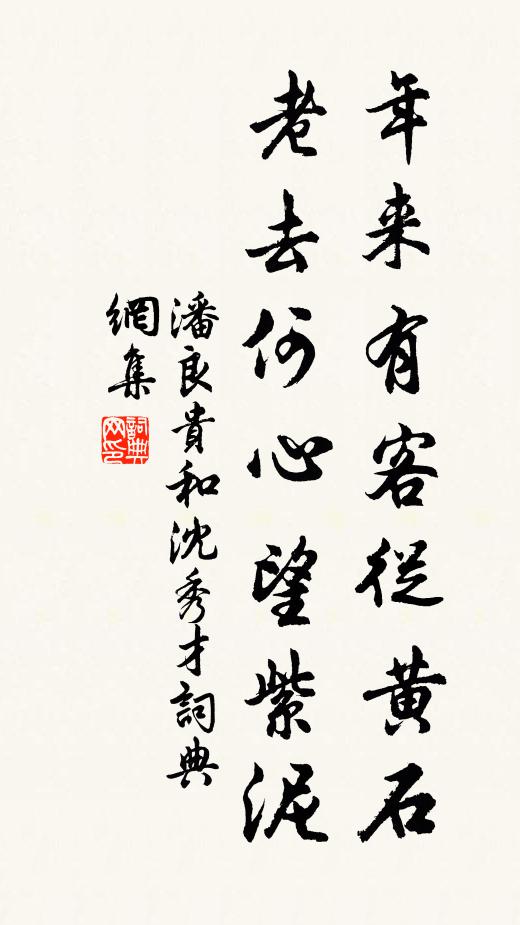 年来有客從黄石
老去何心望紫泥
潘良貴和沈秀才詞典
網集
詞典
网印